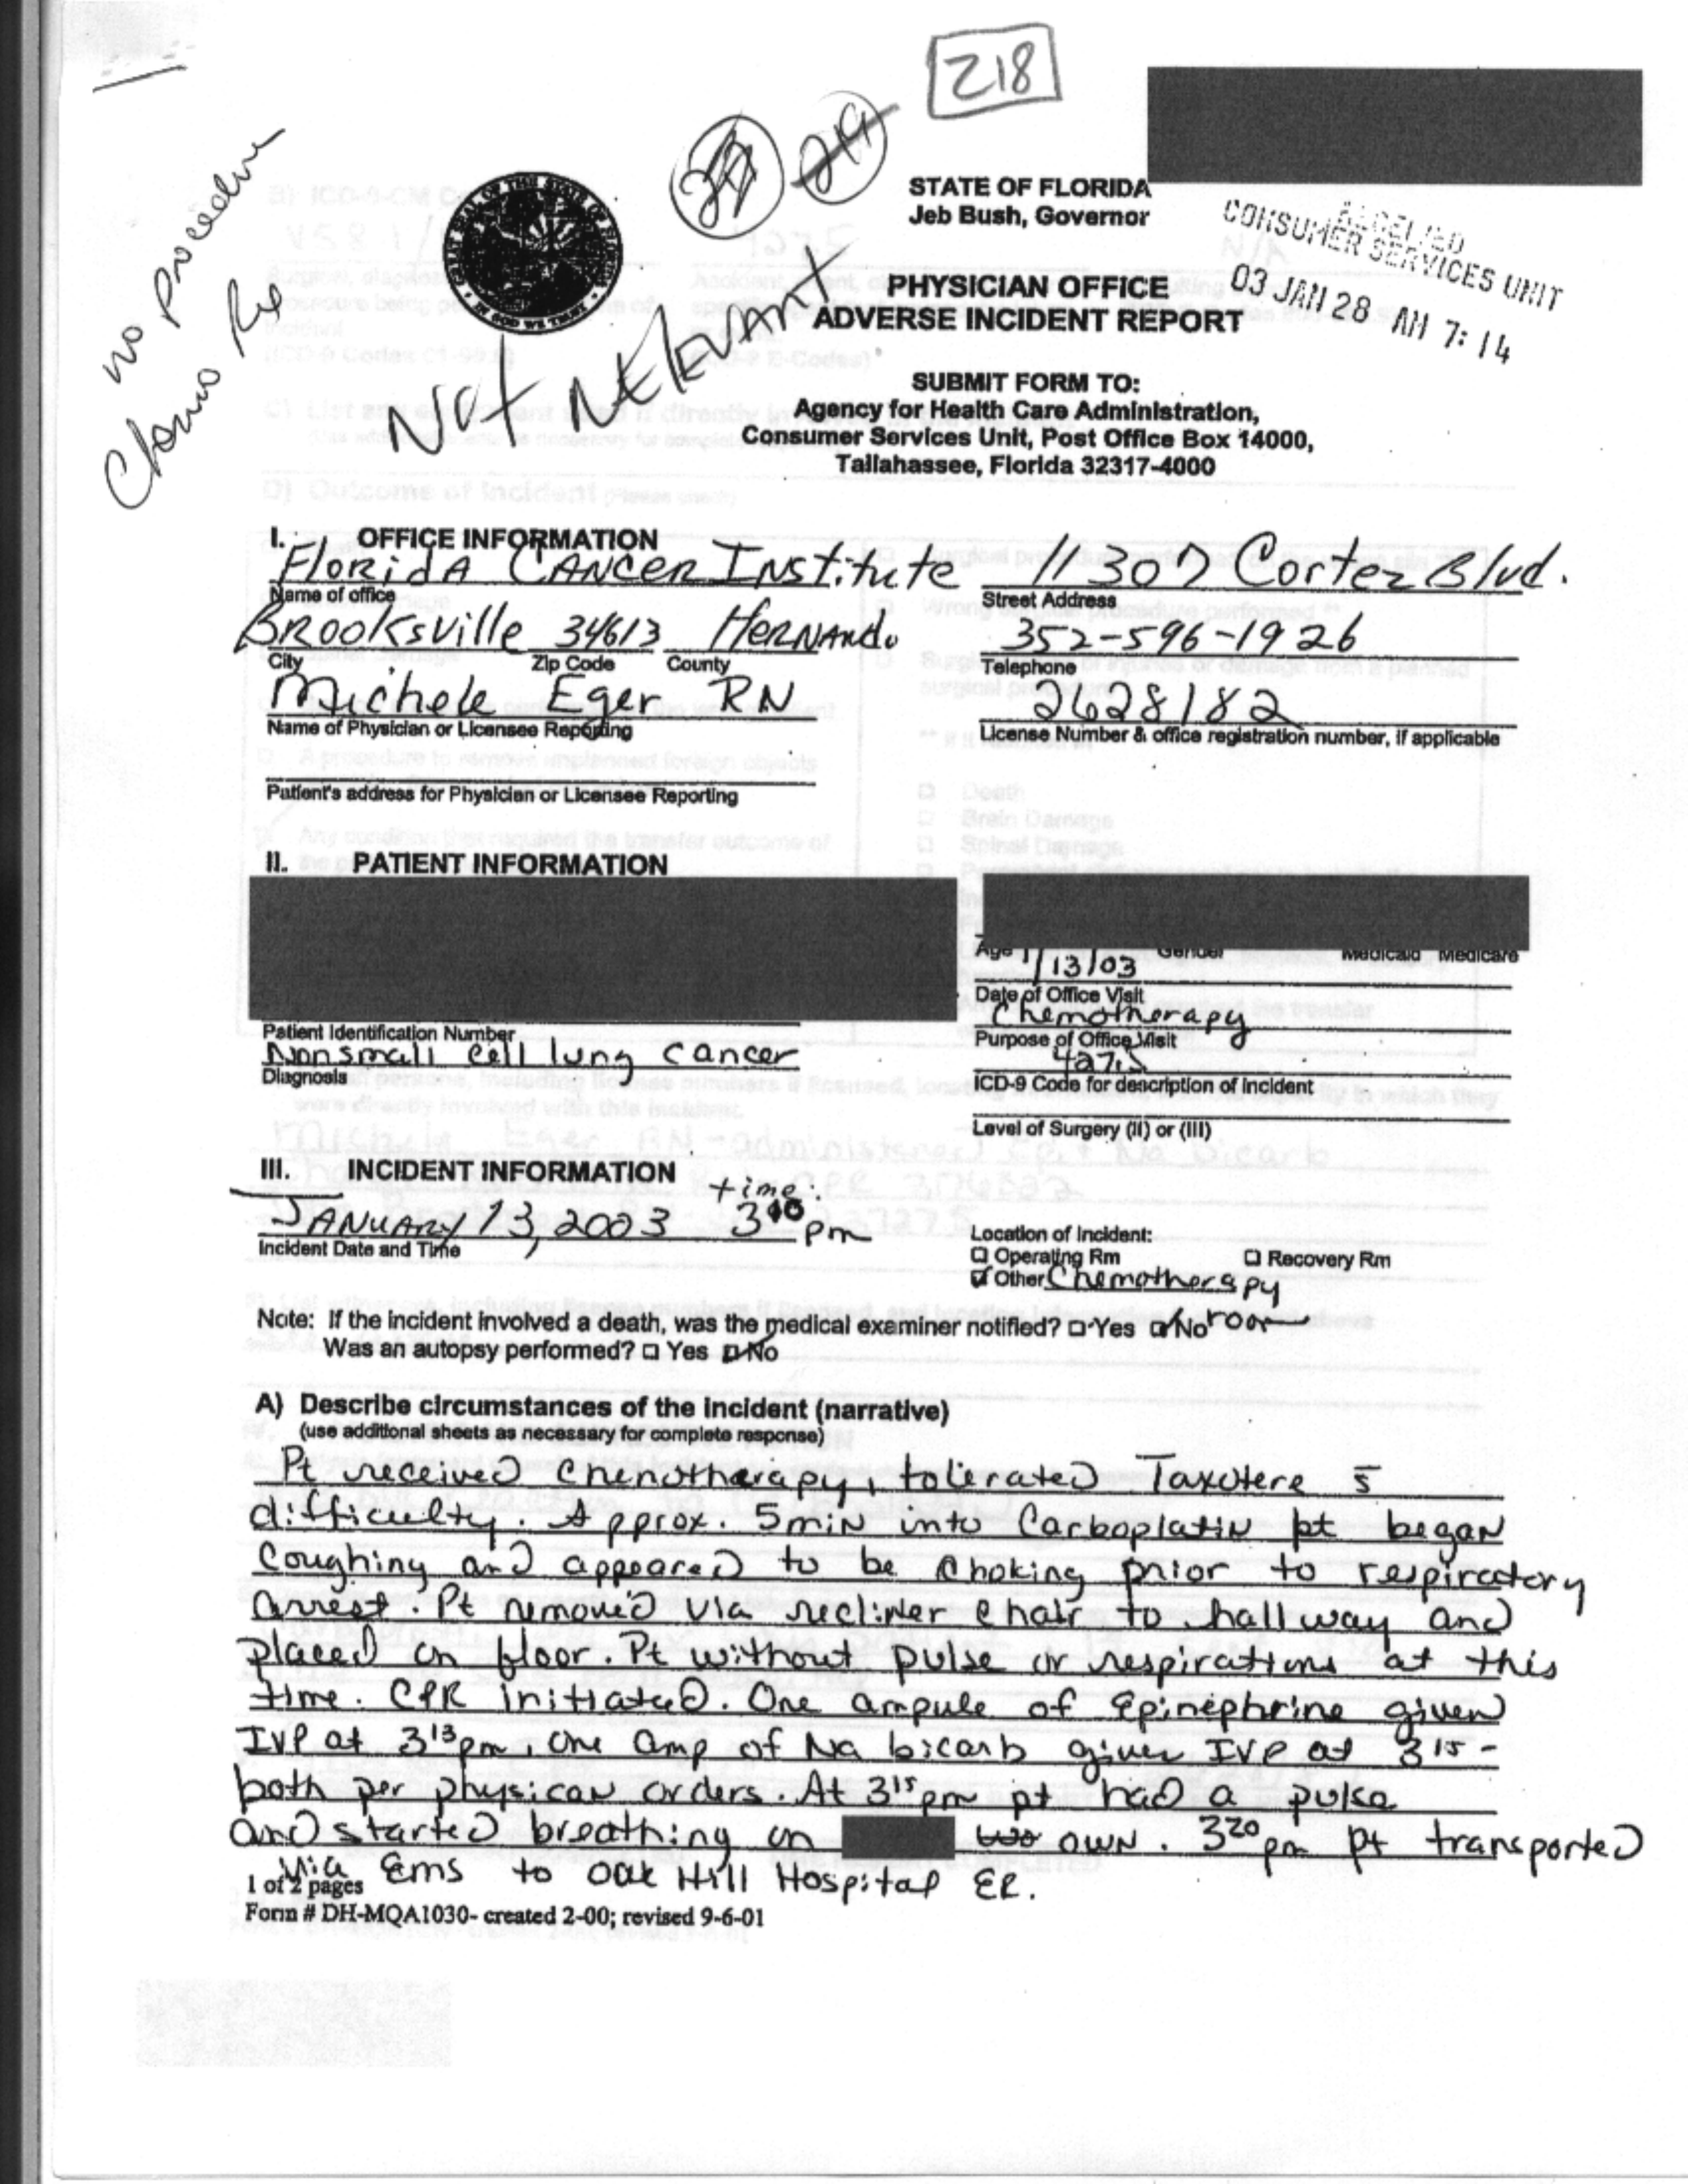 218
no Procedure
Chemo Rx
Not Relevant
STATE OF FLORIDA
Jeb Bush, Governor
CONSUMER SERVICES UNIT
03 JAN 28 AM 7:14
PHYSICIAN OFFICE
ADVERSE INCIDENT REPORT
SUBMIT FORM TO:
Agency for Health Care Administration,
Consumer Services Unit, Post Office Box 14000,
Tallahassee, Florida 32317-4000
I. OFFICE INFORMATION
Florida Cancer Institute 11307 Cortez Blvd.
Name of office Street Address
Brooksville 34613 Hernando 352-596-1926
City Zip Code County Telephone
Michele Eger RN 2628182
Name of Physician or Licensee Reporting License Number & office registration number, if applicable
Patient's address for Physician or Licensee Reporting
II. PATIENT INFORMATION
Age Gender Medicaid Medicare
1/13/03
Date of Office Visit
Chemotherapy
Patient Identification Number Purpose of Office Visit
Nonsmall cell lung cancer 427.5
Diagnosis ICD-9 Code for description of Incident
Level of Surgery (II) or (III)
III. INCIDENT INFORMATION
time:
January 13, 2003 3 10 pm
Incident Date and Time
Location of Incident:
Operating Rm Recovery Rm
Other Chemotherapy
room
Note: If the incident involved a death, was the medical examiner notified? Yes No
Was an autopsy performed? Yes No
A) Describe circumstances of the incident (narrative)
(use additional sheets as necessary for complete response)
Pt received chemotherapy, tolerated Taxotere s̄
difficulty. Approx. 5 min into Carboplatin pt began
coughing and appeared to be choking prior to respiratory
arrest. Pt removed via recliner chair to hallway and
placed on floor. Pt without pulse or respirations at this
time. CPR initiated. One ampule of Epinephrine given
IVP at 3 13 pm, one amp of Na bicarb given IVP at 3 15 -
both per physican orders. At 3 15 pm pt had a pulse
and started breathing on own. 3 20 pm pt transported
via Ems to Oak Hill Hospital ER.
1 of 2 pages
Form # DH-MQA1030- created 2-00; revised 9-6-01